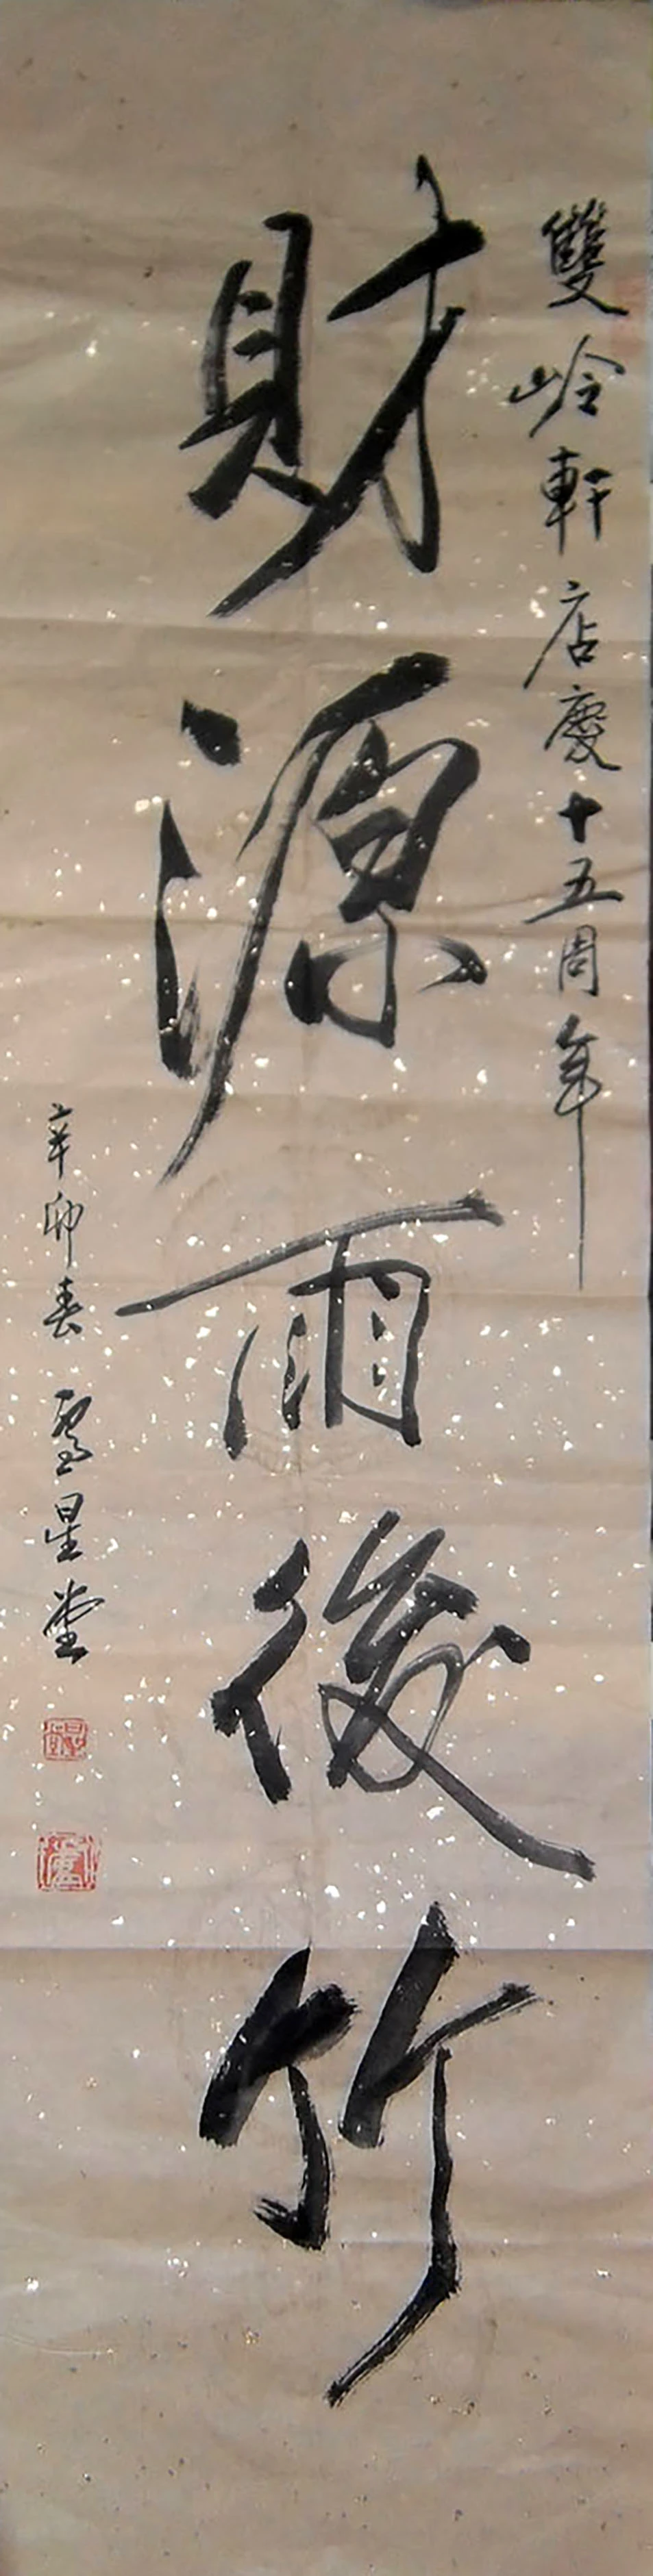 雙岭軒店慶十五周年
財源雨後竹
辛卯春 星堂